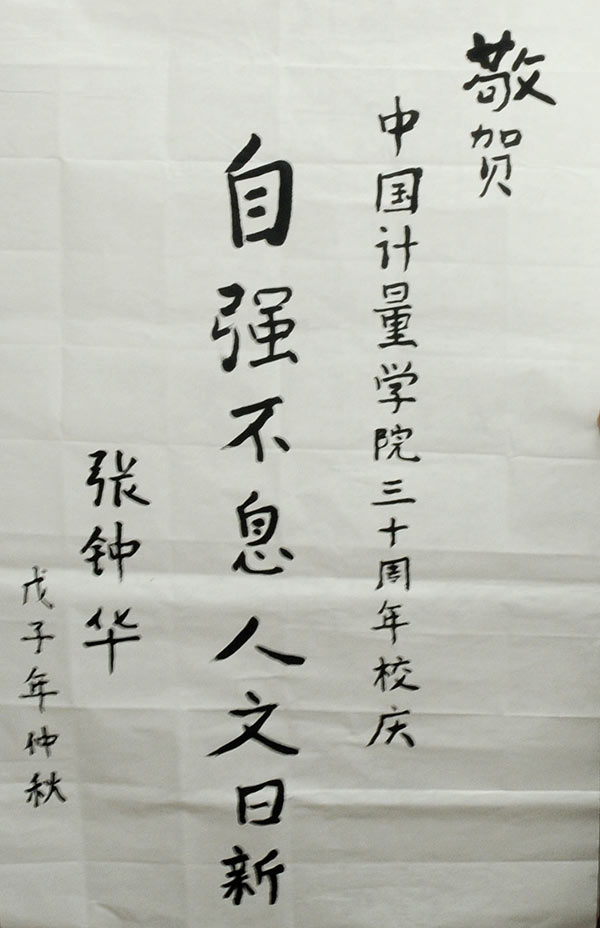 敬贺
中国计量学院三十周年校庆
自强不息人文日新
张钟华
戊子年仲秋